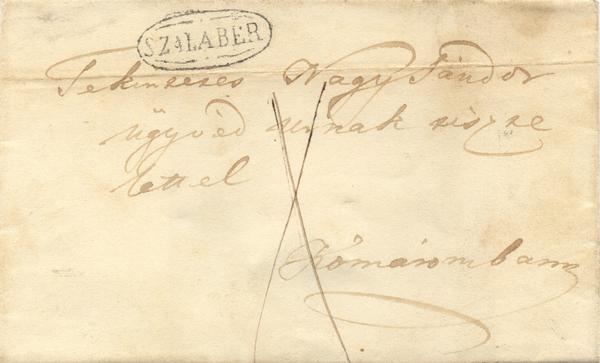 SZALABER
Tekinzezes Nagy Sándor
ügyvéd urnak tiszte
lettel
Komáromban